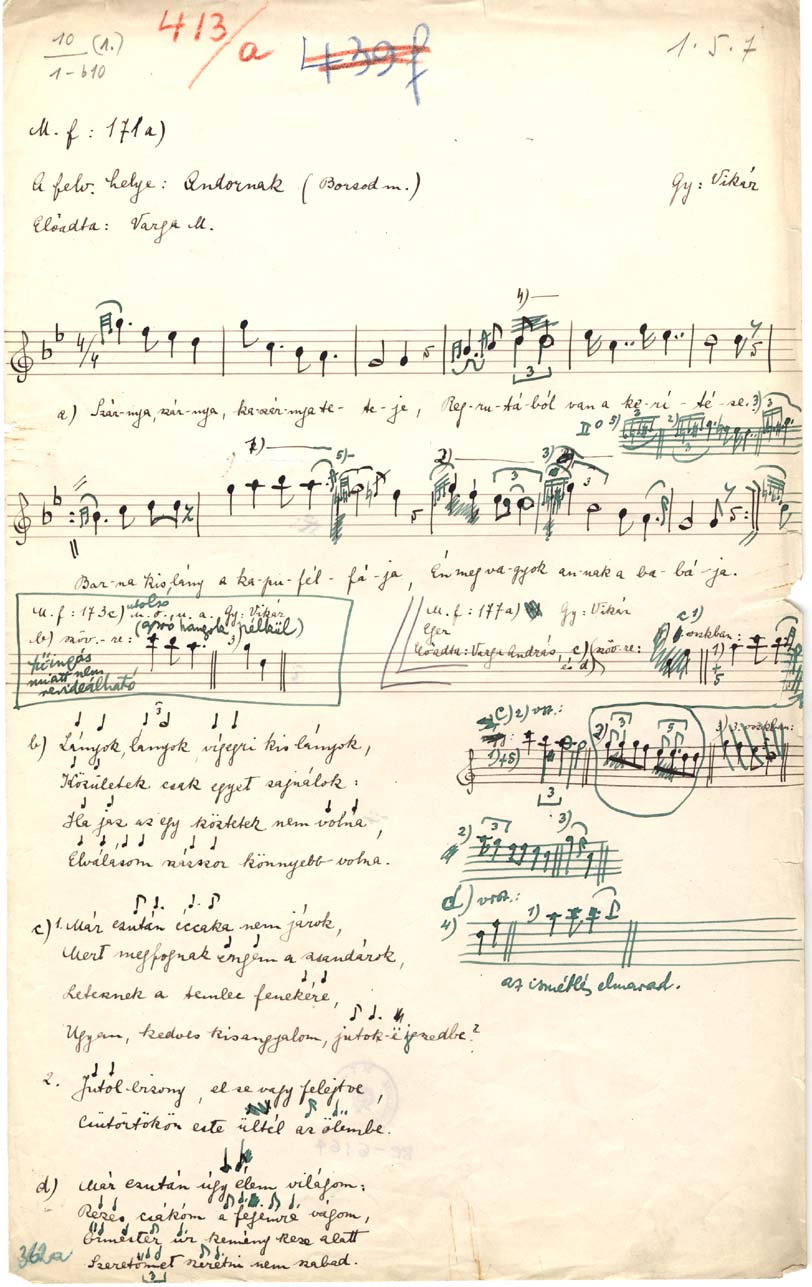 10 (1.)
1-b10
413/a
439f
1.5.7
M. f : 171a)
A felv. helye: Andornak (Borsod m.)
Gy: Vikár
Előadta: Varga M.
4)
4/4
3
a) Szár-nya, szár-nya, ka-szár-nya te- te-je, Reg-ru-tá-ból van a ke-rí-té-se.
II° 5) 2) 3)
1) 5) 2) 3)
3 3
Bar-na kis lány a ka-pu-fél-fá-ja, Én meg va-gyok an-nak a ba-bá-ja.
M. f : 173c) utolsó u. o., u. a. Gy: Vikár
b) szöv.-re: (apró hangok nélkül)
3)
nem revideálható
M. f : 177a) Gy: Vikár
Eger
Előadta: Varga András, c) (szöv.-re: és d)
c 1)
1) +5
b) Lányok, lányok, végegri kis lányok,
Közületek csak egyet sajnálok :
Ha jaz az egy köztetek nem volna,
Elválásom százszor könnyebb volna.
C) 2) vsz.:
1)+5) 2) 3) 3. vszkban:
3
3 5
2) 3 3)
d) vsz.:
4) 1)
az ismétlés elmarad.
c) 1. Már ezután éccaka nem járok,
Mert megfognak engem a zsandárok,
Letesznek a temlec fenekére,
Ugyan, kedves kisangyalom, jutok-ë ëszedbe?
2. Jutol bizony, el se vagy felejtve,
Csütörtökön este ültél az ölembe.
d) Már ezután úgy élem világom:
Rézes csákóm a fejemre vágom,
Őrmester úr kemény keze alatt
Szeretőmet szeretni nem szabad.
3
362a